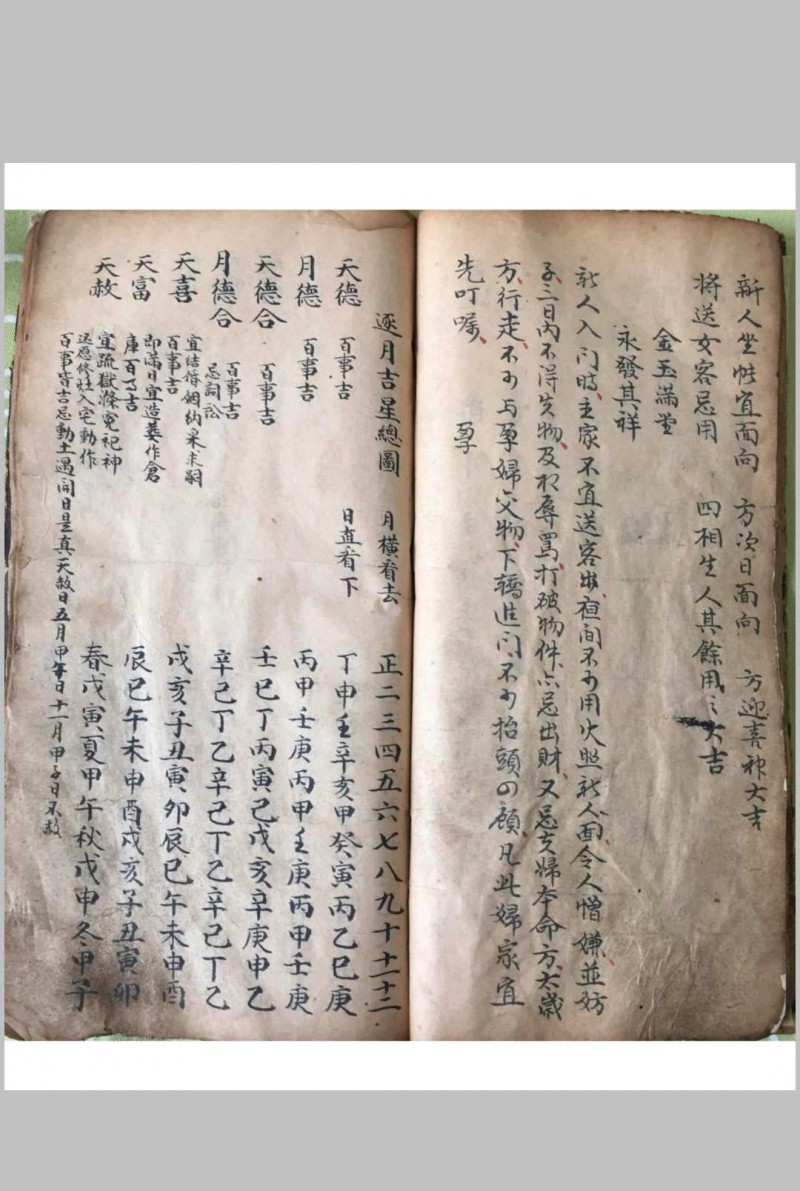 新人坐帳宜面向　方次日面向　方迎喜神大吉
將送女客忌用　四相生人其餘用之大吉
金玉滿堂
永發其祥
新人入門時主家不宜送客出夜間不可用火照新人面令人憎嫌並妨
子三日內不得失物及相辱罵打破物件亦忌出財又忌夫婦本命方太歲
方行走不可与孕婦交物下轎進门不可抬頭四顧凡此婦家宜
先叮囑　孕
逐月吉星總圖　月橫看去　日直看下　正二三四五六七八九十十一十二
天德　百事吉　丁申壬辛亥甲癸寅丙乙巳庚
月德　百事吉　丙甲壬庚丙甲壬庚丙甲壬庚
天德合　百事吉　壬巳丁丙寅己戊亥辛庚申乙
月德合　百事吉　忌詞訟　辛己丁乙辛己丁乙辛己丁乙
天喜　宜結婚姻納采求嗣　百事吉　戌亥子丑寅卯辰巳午未申酉
天富　即滿日宜造葬作倉　庫百事吉　辰巳午未申酉戌亥子丑寅卯
天赦　宜疏獄滌冤祀神　还愿修灶入宅動作　百事皆吉忌動土遇開日是真天赦日五月甲午日十一月甲子日不赦　春戊寅夏甲午秋戊申冬甲子